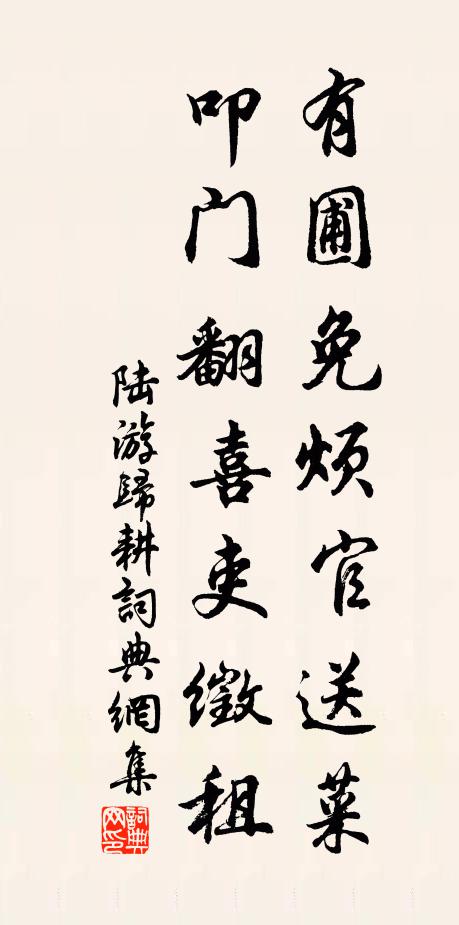 有圃免烦官送菜
叩门翻喜吏徵租
陆游歸耕詞典網集
詞典网印